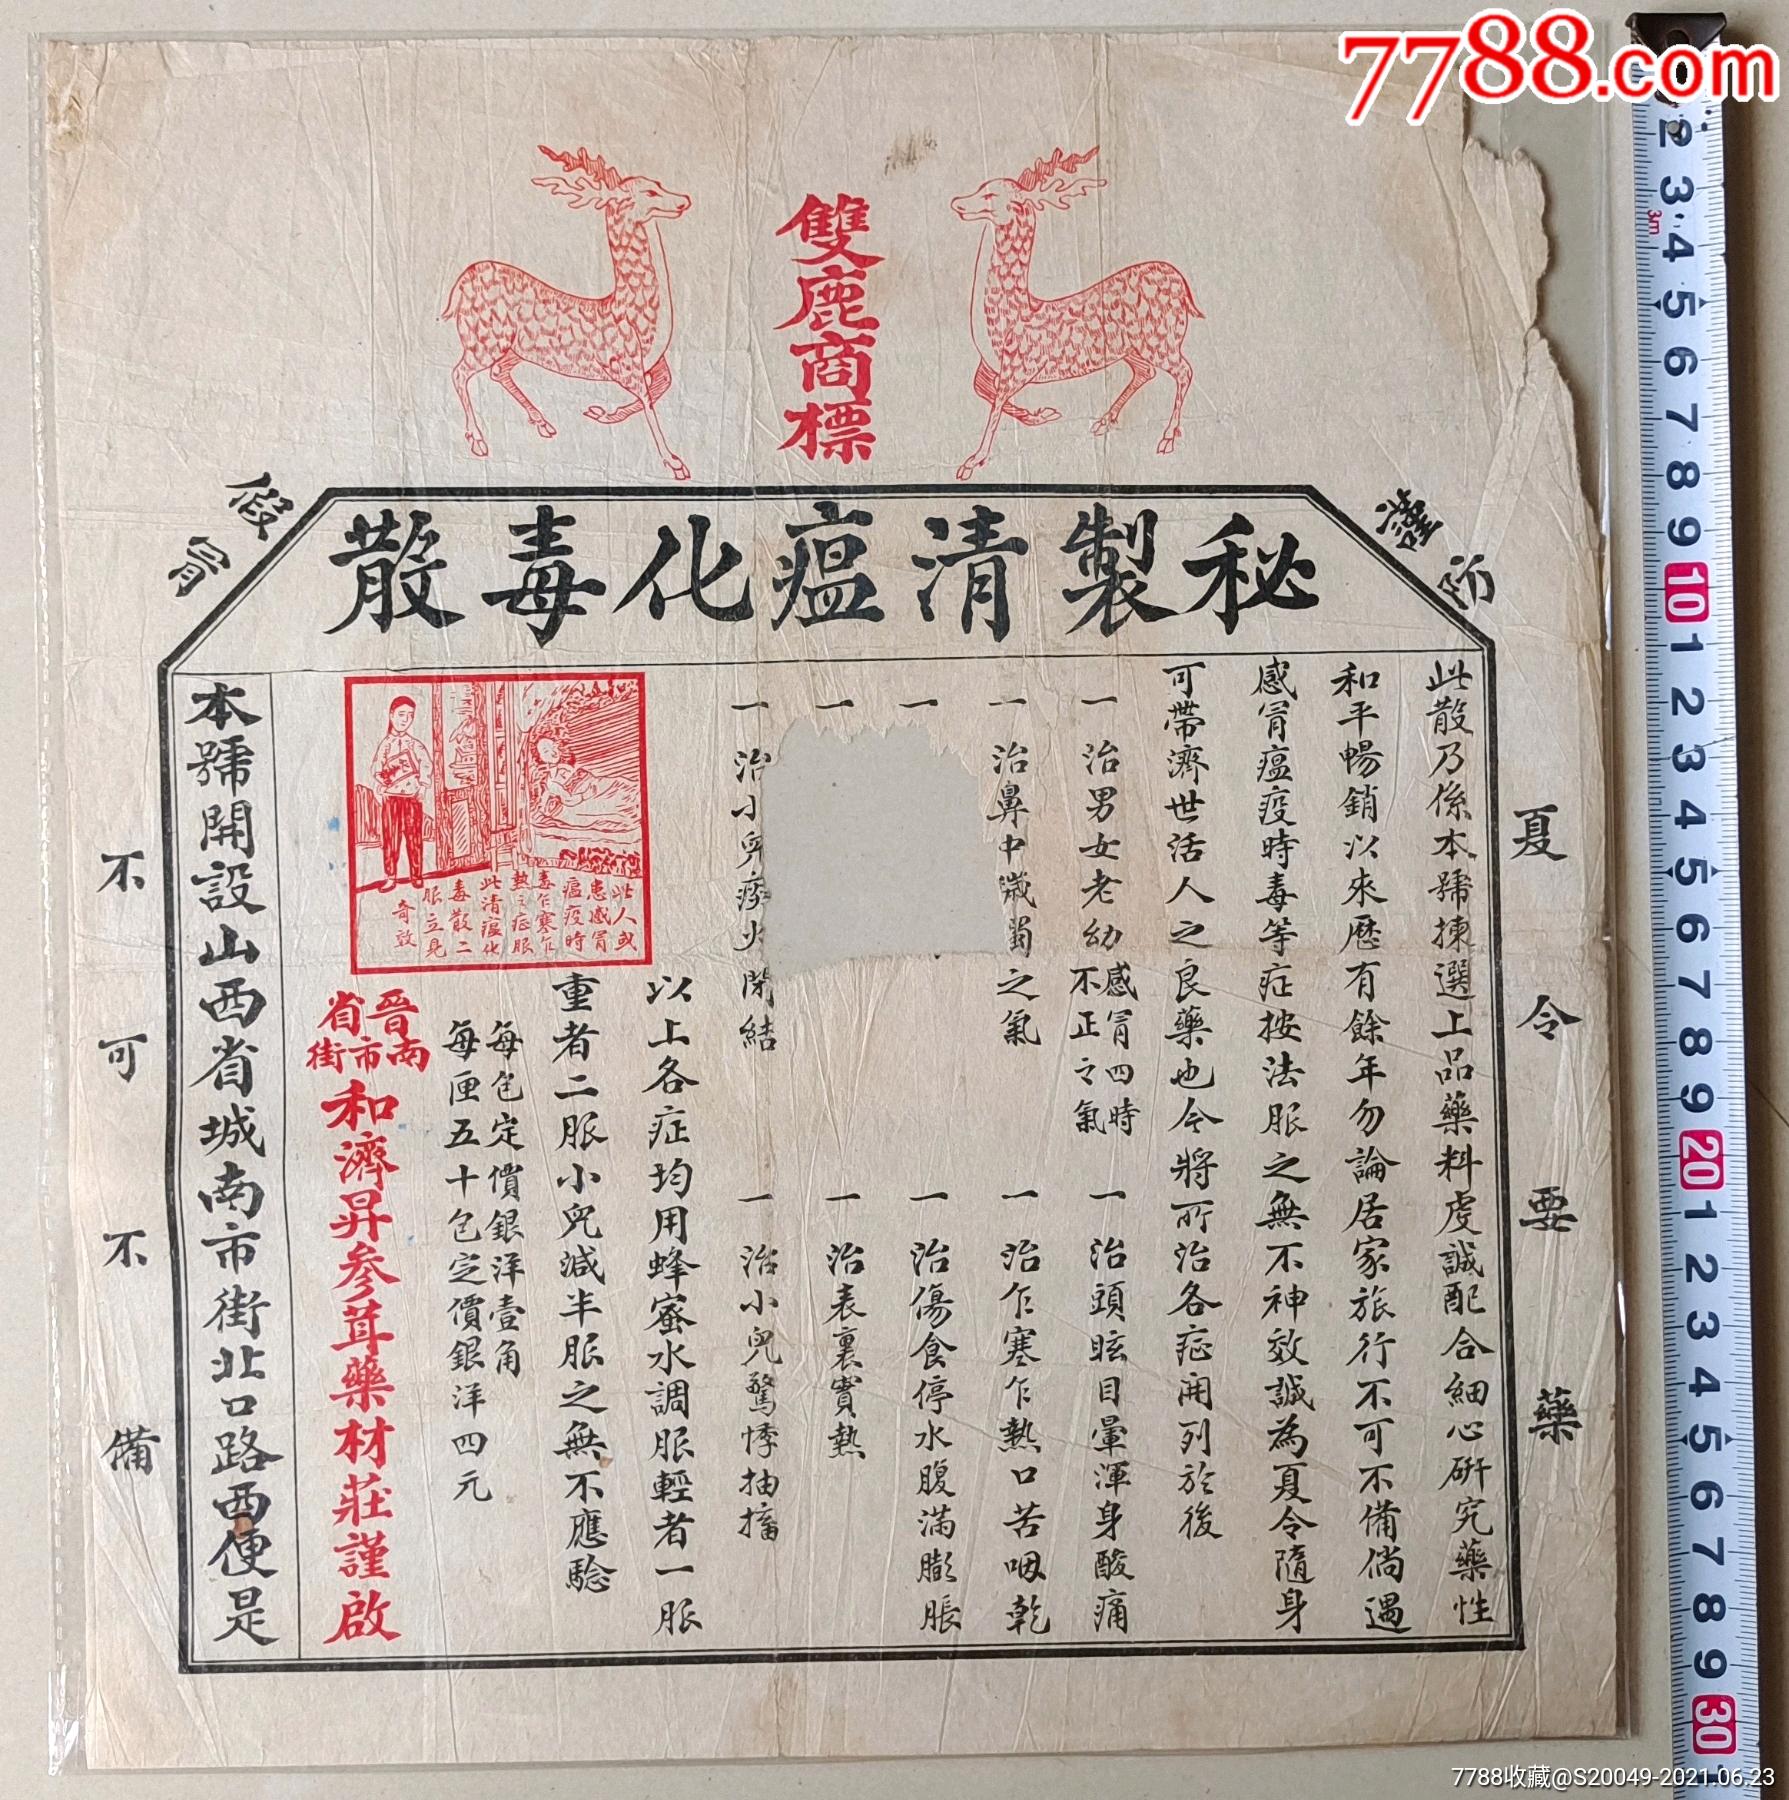 7788.com
雙鹿商標
謹防
假冒
秘製清瘟化毒散
夏令要藥
此散乃係本號揀選上品藥料虔誠配合細心研究藥性
和平暢銷以來歷有餘年勿論居家旅行不可不備倘遇
感冒瘟疫時毒等症按法服之無不神效誠為夏令隨身
可帶濟世活人之良藥也今將所治各症開列於後
一治男女老幼感冒四時不正之氣
一治頭眩目暈渾身酸痛
一治鼻中濊濁之氣
一治乍寒乍熱口苦咽乾
一
一治傷食停水腹滿膨脹
一
一治表裏實熱
一治小兒痧火閉結
一治小兒驚悸抽搐
以上各症均用蜂蜜水調服輕者一服
重者二服小兒減半服之無不應驗
每包定價銀洋壹角
每匣五十包定價銀洋四元
此人或
患感冒
瘟疫時
毒乍寒乍
熱之症服
此清瘟化
毒散二
服立見
奇效
晋省
南市街
和濟昇參茸藥材莊謹啟
本號開設山西省城南市街北口路西便是
不可不備
2 3 4 5 6 7 8 9 10 1 2 3 4 5 6 7 8 9 20 1 2 3 4 5 6 7 8 9 30 1
3m
7788收藏@S20049-2021.06.23